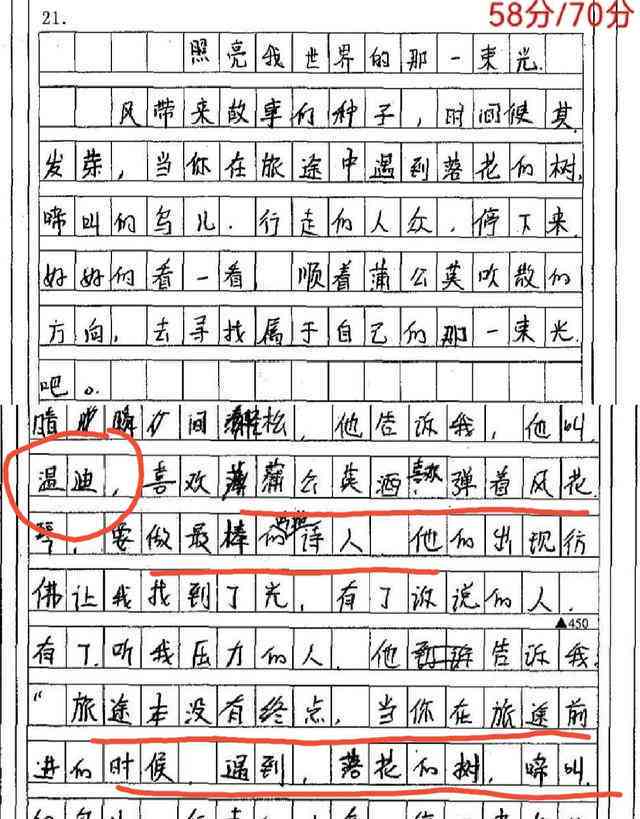 21.
58分/70分
照亮我世界的那一束光.
风带来故事的种子，时间候其
发芽，当你在旅途中遇到落花的树，
啼叫的鸟儿.行走的人众，停下来
好好的看一看，顺着蒲公英吹散的
方向，去寻找属于自己的那一束光
吧。
间 松，他告诉我，他叫
温迪，喜欢蒲公英酒喜欢弹着风花
琴，要做最棒的诗人 他的出现仿
佛让我找到了光，有了诉说的人.
▲450
有了听我压力的人.他 告诉我:
“旅途本没有终点，当你在旅途前
进的时候，遇到，落花的树，啼叫.